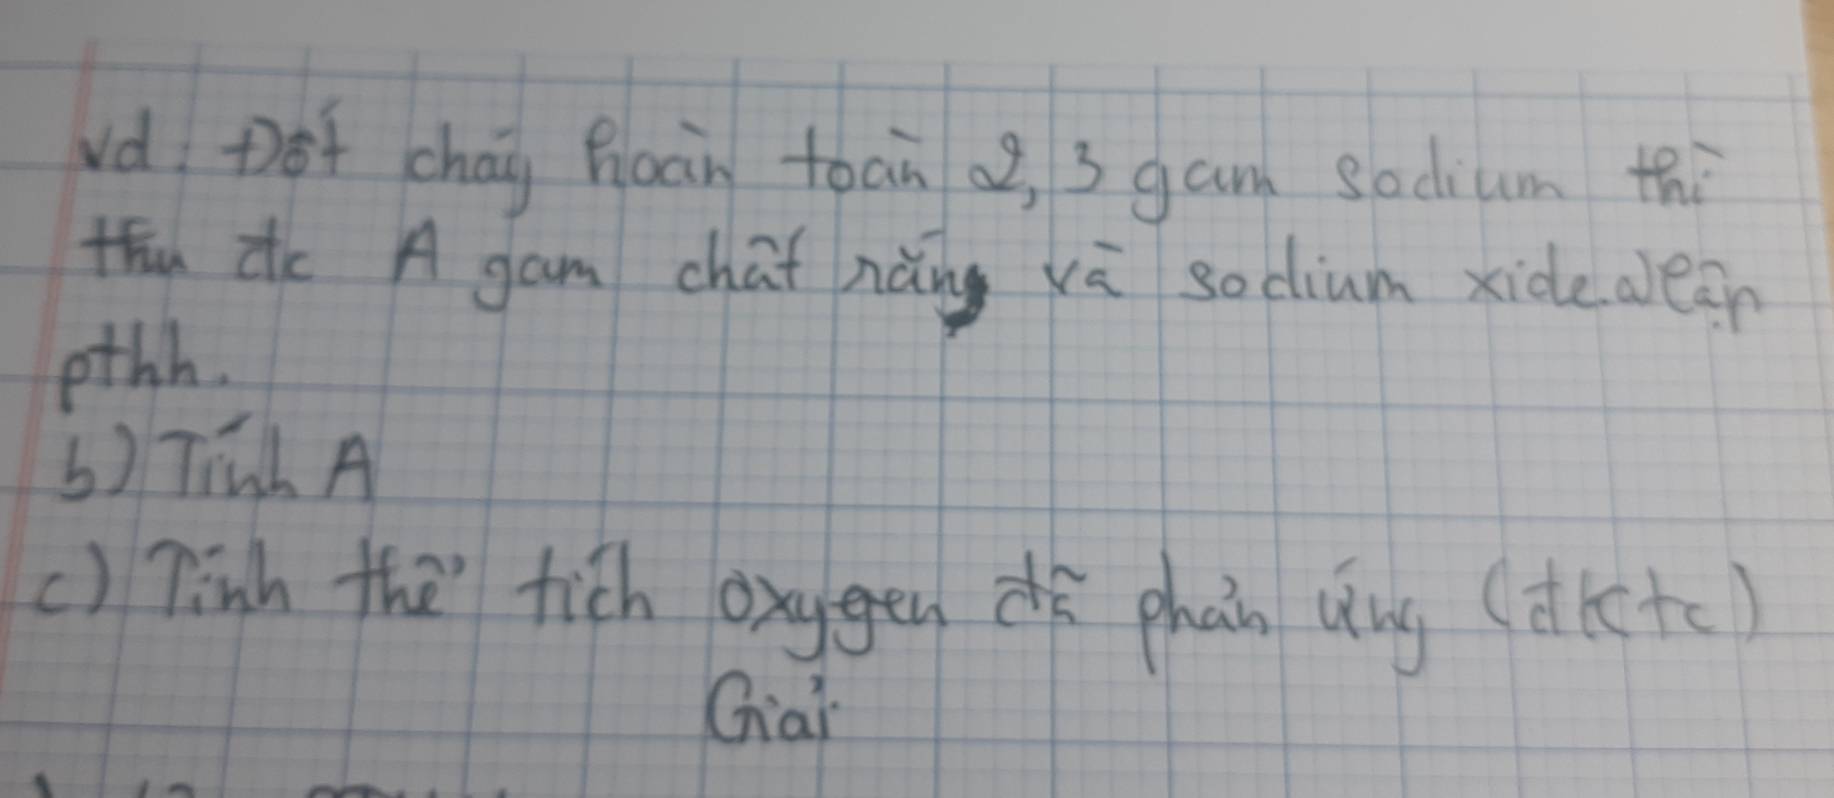 vd: Đốt cháy hoàn toàn 2,3 gam sodium thì
thu đc A gam chất rắn và sodium xide.a)lập
pthh.
b) Tính A
c) Tính thể tích oxygen đã phản ứng (đktc)
Giải